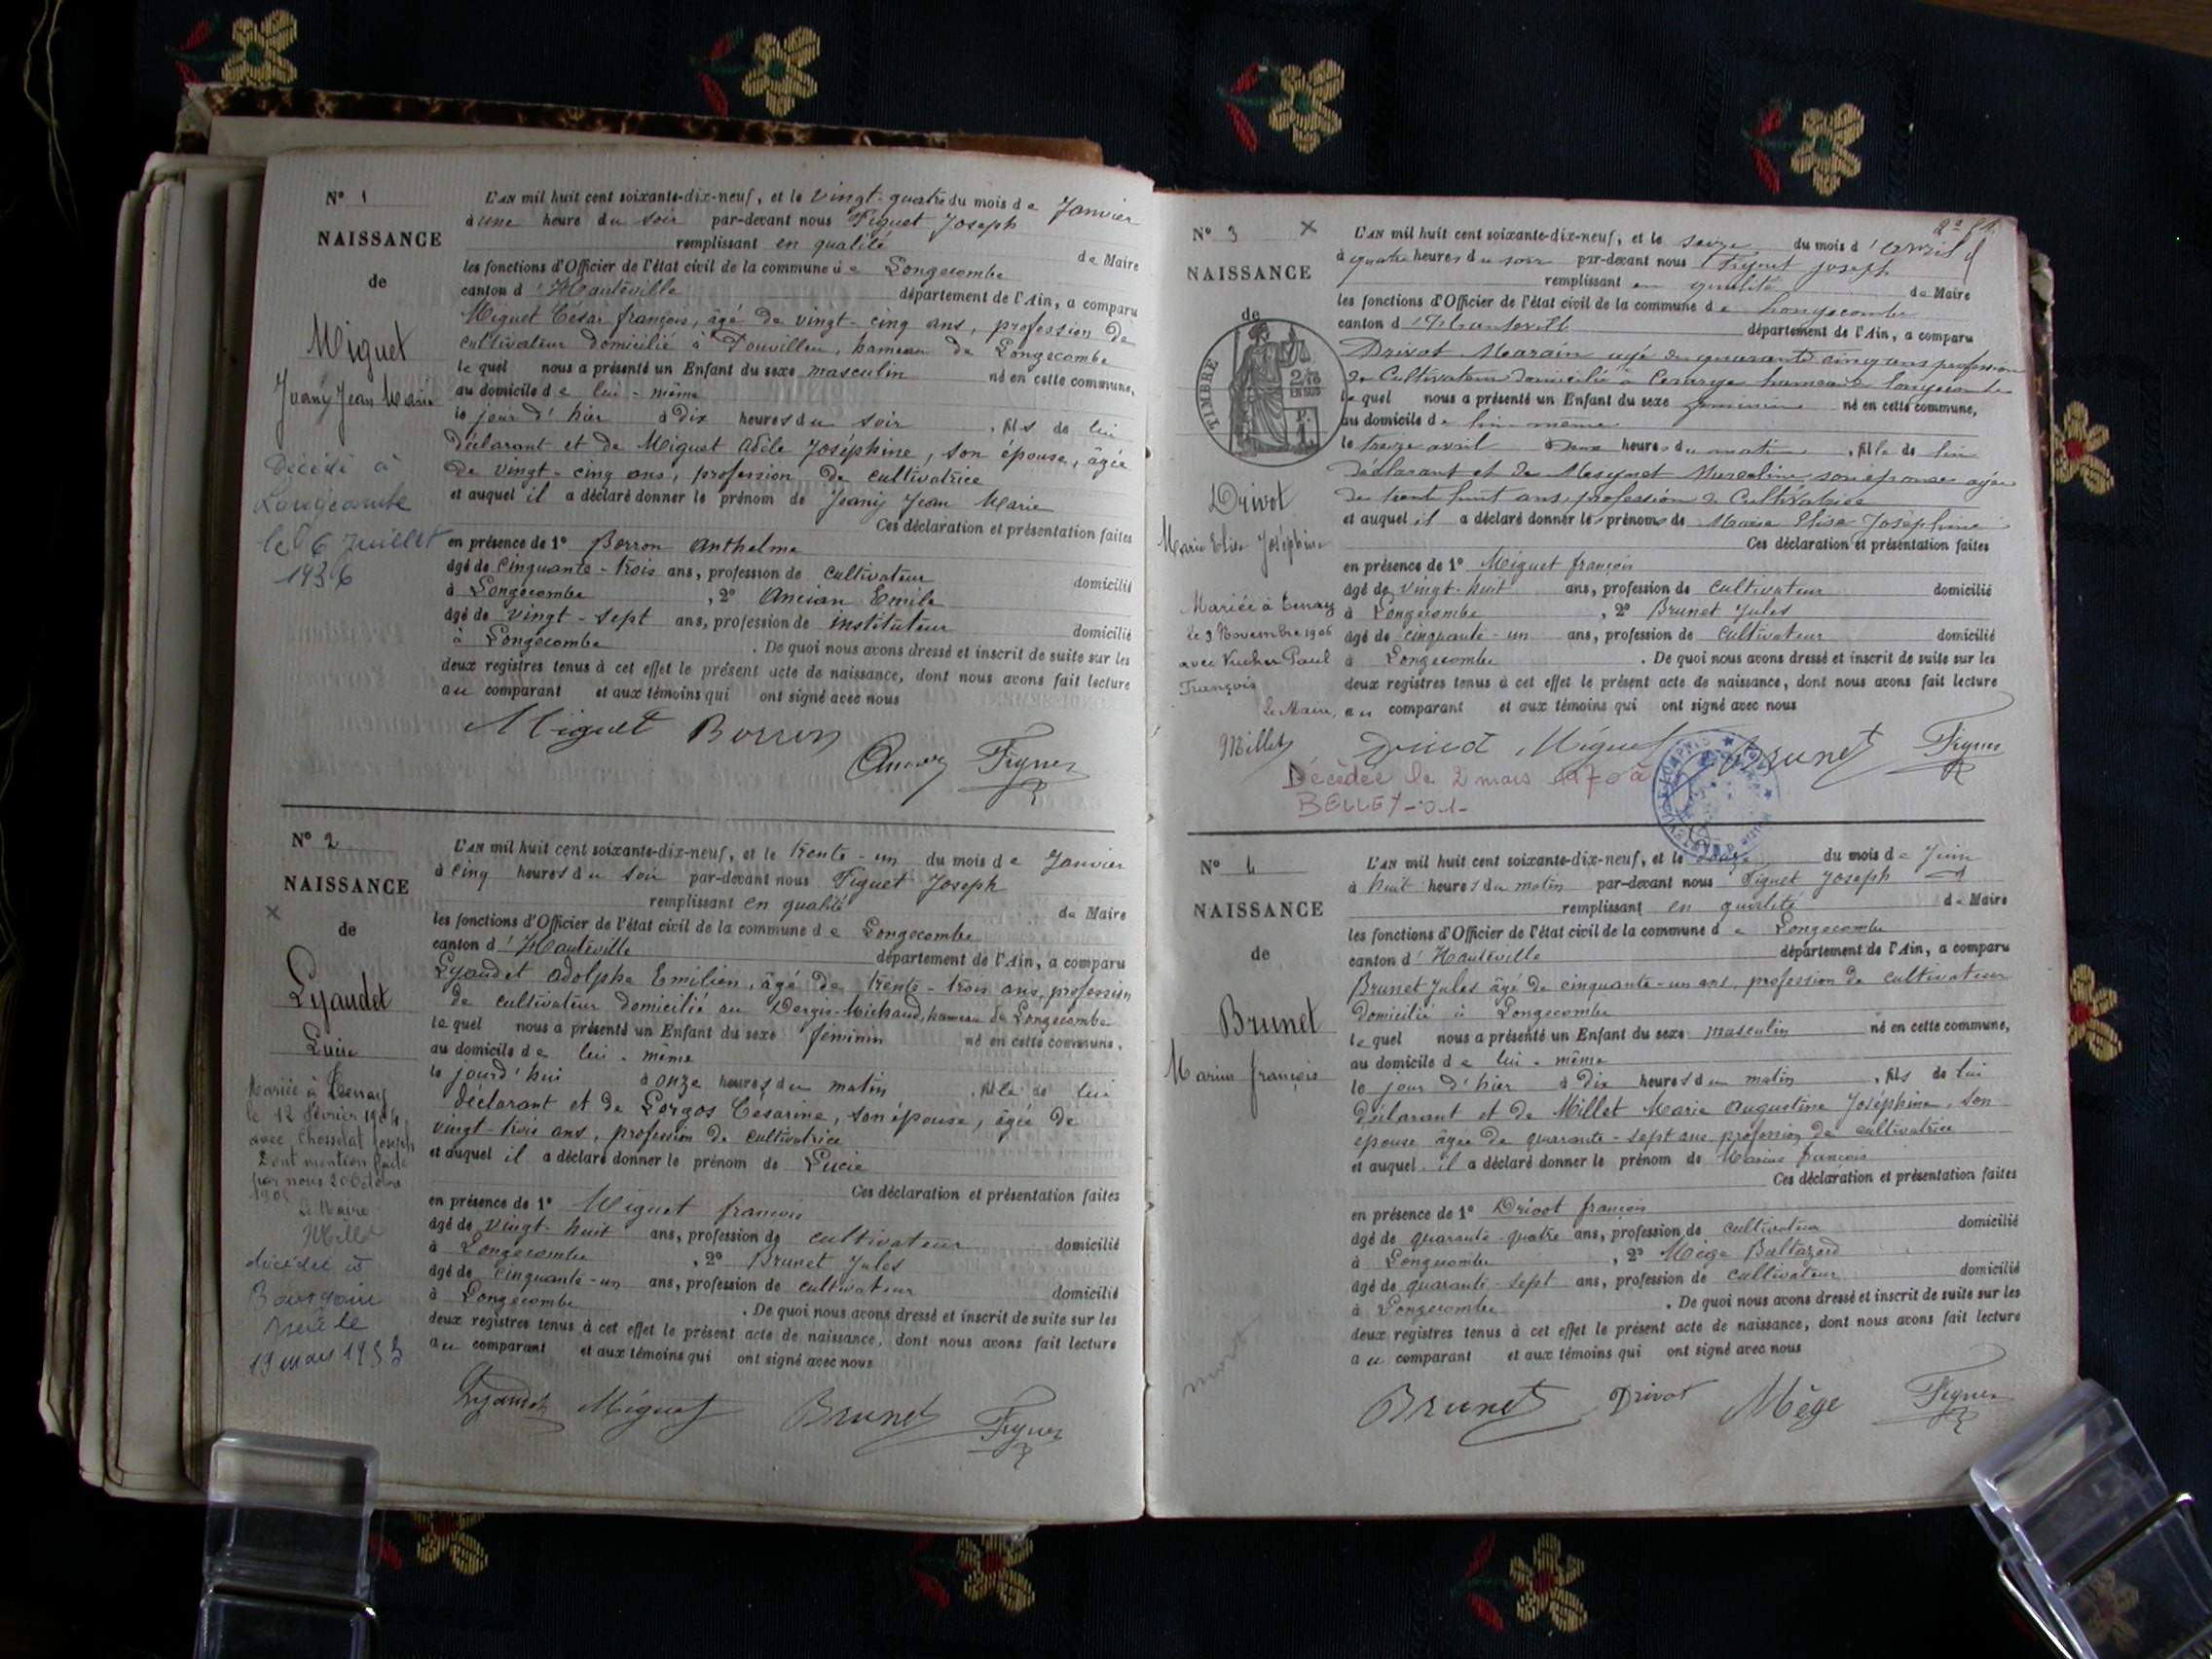 N° 1
NAISSANCE
de
Miguet
Jeany Jean Marie
Décédé à
Longecombe
le 6 Juillet
1936
L'AN mil huit cent soixante-dix-neuf, et le vingt-quatre du mois de Janvier
à une heure du soir par-devant nous Figuet Joseph
remplissant en qualité de Maire
les fonctions d'Officier de l'état civil de la commune de Longecombe
canton d'Hauteville département de l'Ain, a comparu
Miguet César françois, âgé de vingt-cinq ans, profession de
cultivateur domicilié à hameau de Longecombe
lequel nous a présenté un Enfant du sexe masculin né en cette commune,
au domicile de lui-même
le jour d'hier à dix heures du soir, fils de lui
déclarant et de Miguet Adèle Joséphine, son épouse, âgée
de vingt-cinq ans, profession de cultivatrice
et auquel il a déclaré donner le prénom de Jeany Jean Marie
Ces déclaration et présentation faites
en présence de 1° Borron Anthelme
âgé de cinquante-trois ans, profession de cultivateur domicilié
à Longecombe, 2° Ancian Emile
âgé de vingt-sept ans, profession de instituteur domicilié
à Longecombe. De quoi nous avons dressé et inscrit de suite sur les
deux registres tenus à cet effet le présent acte de naissance, dont nous avons fait lecture
au comparant et aux témoins qui ont signé avec nous
Miguet Borron
N° 2
NAISSANCE
de
Lyaudet
Lucie
Mariée à Tenay
le 12 février 1904
avec Chosselat Joseph
Dont mention faite
par nous 20 Octobre
1905
Le Maire
Millet
décédée à
Bourgoin
Isère le
L'AN mil huit cent soixante-dix-neuf, et le trente-un du mois de Janvier
à cinq heures du soir par-devant nous Figuet Joseph
remplissant en qualité de Maire
les fonctions d'Officier de l'état civil de la commune de Longecombe
canton d'Hauteville département de l'Ain, a comparu
Lyaudet Adolphe Emilien, âgé de trente-trois ans, profession
de cultivateur domicilié au Dergis-Michaud, hameau de Longecombe
lequel nous a présenté un Enfant du sexe féminin né en cette commune,
au domicile de lui-même
le jourd'hui à onze heures du matin, fille de lui
déclarant et de Gorgos Césarine, son épouse, âgée de
vingt-trois ans, profession de cultivatrice
et auquel il a déclaré donner le prénom de Lucie
Ces déclaration et présentation faites
en présence de 1° Miguet françois
âgé de vingt-huit ans, profession de cultivateur domicilié
à Longecombe, 2° Brunet Jules
âgé de cinquante-un ans, profession de cultivateur domicilié
à Longecombe. De quoi nous avons dressé et inscrit de suite sur les
deux registres tenus à cet effet le présent acte de naissance, dont nous avons fait lecture
au comparant et aux témoins qui ont signé avec nous
Lyaudet Miguet Brunet
N° 3
NAISSANCE
de
TIMBRE
Drivot
Marie Elise Joséphine
Mariée à Tenay
le 3 Novembre 1906
avec Vucher Paul
François
Le Maire,
Millet
L'AN mil huit cent soixante-dix-neuf, et le seize du mois d'avril
à quatre heures du soir par-devant nous Figuet Joseph
remplissant en qualité de Maire
les fonctions d'Officier de l'état civil de la commune de Longecombe
canton d'Hauteville département de l'Ain, a comparu
Drivot Marain âgé de quarante cinq ans profession
de Cultivateur domicilié à hameau Longecombe
lequel nous a présenté un Enfant du sexe féminin né en cette commune,
au domicile de lui-même
le treize avril à heures du matin, fille de lui
déclarant et de Marceline son épouse âgée
de trente huit ans, profession de Cultivatrice
et auquel il a déclaré donner les prénoms de Marie Elise Joséphine
Ces déclaration et présentation faites
en présence de 1° Miguet françois
âgé de vingt-huit ans, profession de cultivateur domicilié
à Longecombe, 2° Brunet Jules
âgé de cinquante-un ans, profession de cultivateur domicilié
à Longecombe. De quoi nous avons dressé et inscrit de suite sur les
deux registres tenus à cet effet le présent acte de naissance, dont nous avons fait lecture
au comparant et aux témoins qui ont signé avec nous
Drivot Miguet Brunet
Décédée le 2 mars 1970 à
BELLEY-01-
N° 4
NAISSANCE
de
Brunet
Marius françois
mort
L'AN mil huit cent soixante-dix-neuf, et le douze du mois de Juin
à huit heures du matin par-devant nous Figuet Joseph
remplissant en qualité de Maire
les fonctions d'Officier de l'état civil de la commune de Longecombe
canton d'Hauteville département de l'Ain, a comparu
Brunet Jules âgé de cinquante-un ans, profession de cultivateur
domicilié à Longecombe
lequel nous a présenté un Enfant du sexe masculin né en cette commune,
au domicile de lui-même
le jour d'hier à dix heures du matin, fils de lui
déclarant et de Millet Marie Augustine Joséphine, son
épouse âgée de quarante-sept ans profession de cultivatrice
et auquel il a déclaré donner le prénom de Marius françois
Ces déclaration et présentation faites
en présence de 1° Drivot françois
âgé de quarante-quatre ans, profession de cultivateur domicilié
à Longecombe, 2° Mège Baltazard
âgé de quarante-sept ans, profession de cultivateur domicilié
à Longecombe. De quoi nous avons dressé et inscrit de suite sur les
deux registres tenus à cet effet le présent acte de naissance, dont nous avons fait lecture
au comparant et aux témoins qui ont signé avec nous
Brunet Drivot Mège